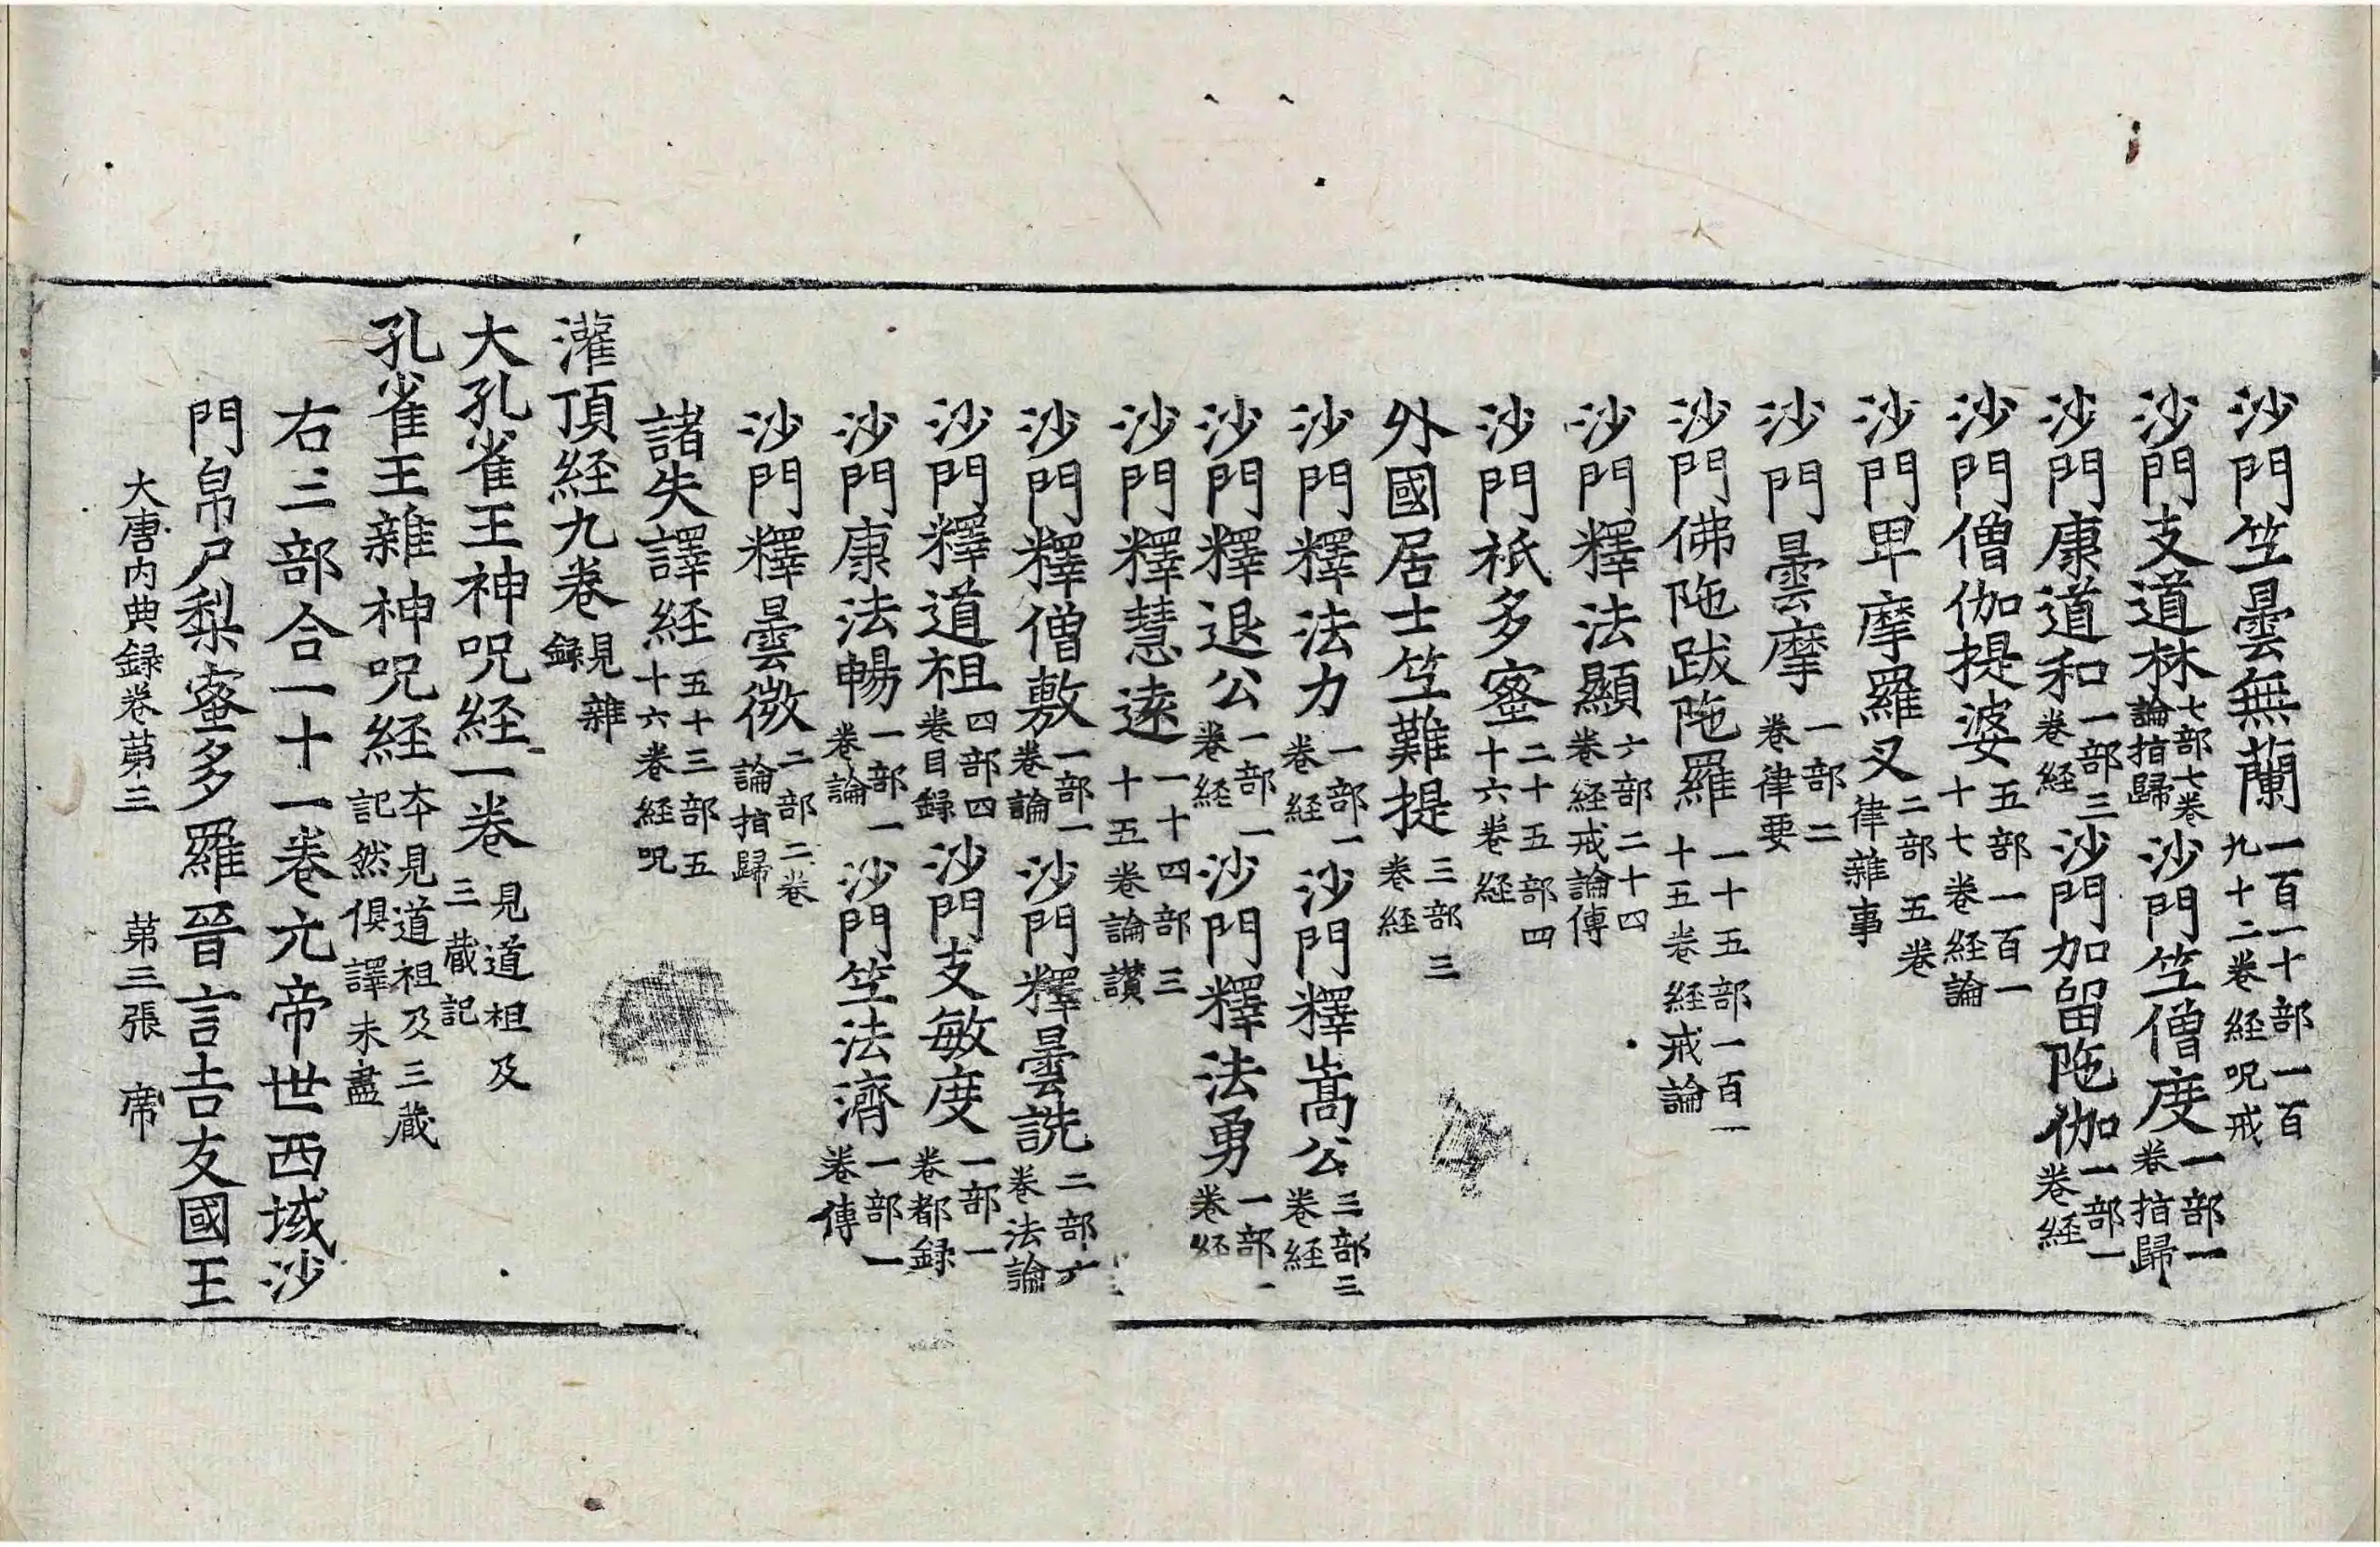 沙門竺曇無蘭一百一十部一百九十二卷経呪戒
沙門支道林七部七卷論指歸沙門竺僧度一部一卷指歸
沙門康道和一部三卷経沙門加留陁伽一部一卷経
沙門僧伽提婆五部一百一十七卷経論
沙門卑摩羅叉二部五卷律雜事
沙門曇摩一部二卷律要
沙門佛陁跋陁羅一十五部一百一十五卷経戒論
沙門釋法顯六部二十四卷経戒論傳
沙門祇多蜜二十五部四十六卷経
外國居士竺難提三部三卷経
沙門釋法力一部一卷経沙門釋嵩公三部三卷経
沙門釋退公一部一卷経沙門釋法勇一部一卷経
沙門釋慧遠一十四部三十五卷論讃
沙門釋僧敷一部一卷論沙門釋曇詵二部六卷法論
沙門釋道祖四部四卷目録沙門支敏度一部一卷都録
沙門康法暢一部一卷論沙門竺法濟一部一卷傳
沙門釋曇微二部二卷論指歸
諸失譯経五十三部五十六卷経呪
灌頂経九卷見雜録
大孔雀王神呪経一卷見道祖及三藏記
孔雀王雜神呪経夲見道祖及三藏記然俱譯未盡
右三部合一十一卷元帝世西域沙
門帛尸梨蜜多羅晉言吉友國王
大唐内典録卷苐三 苐三張 席